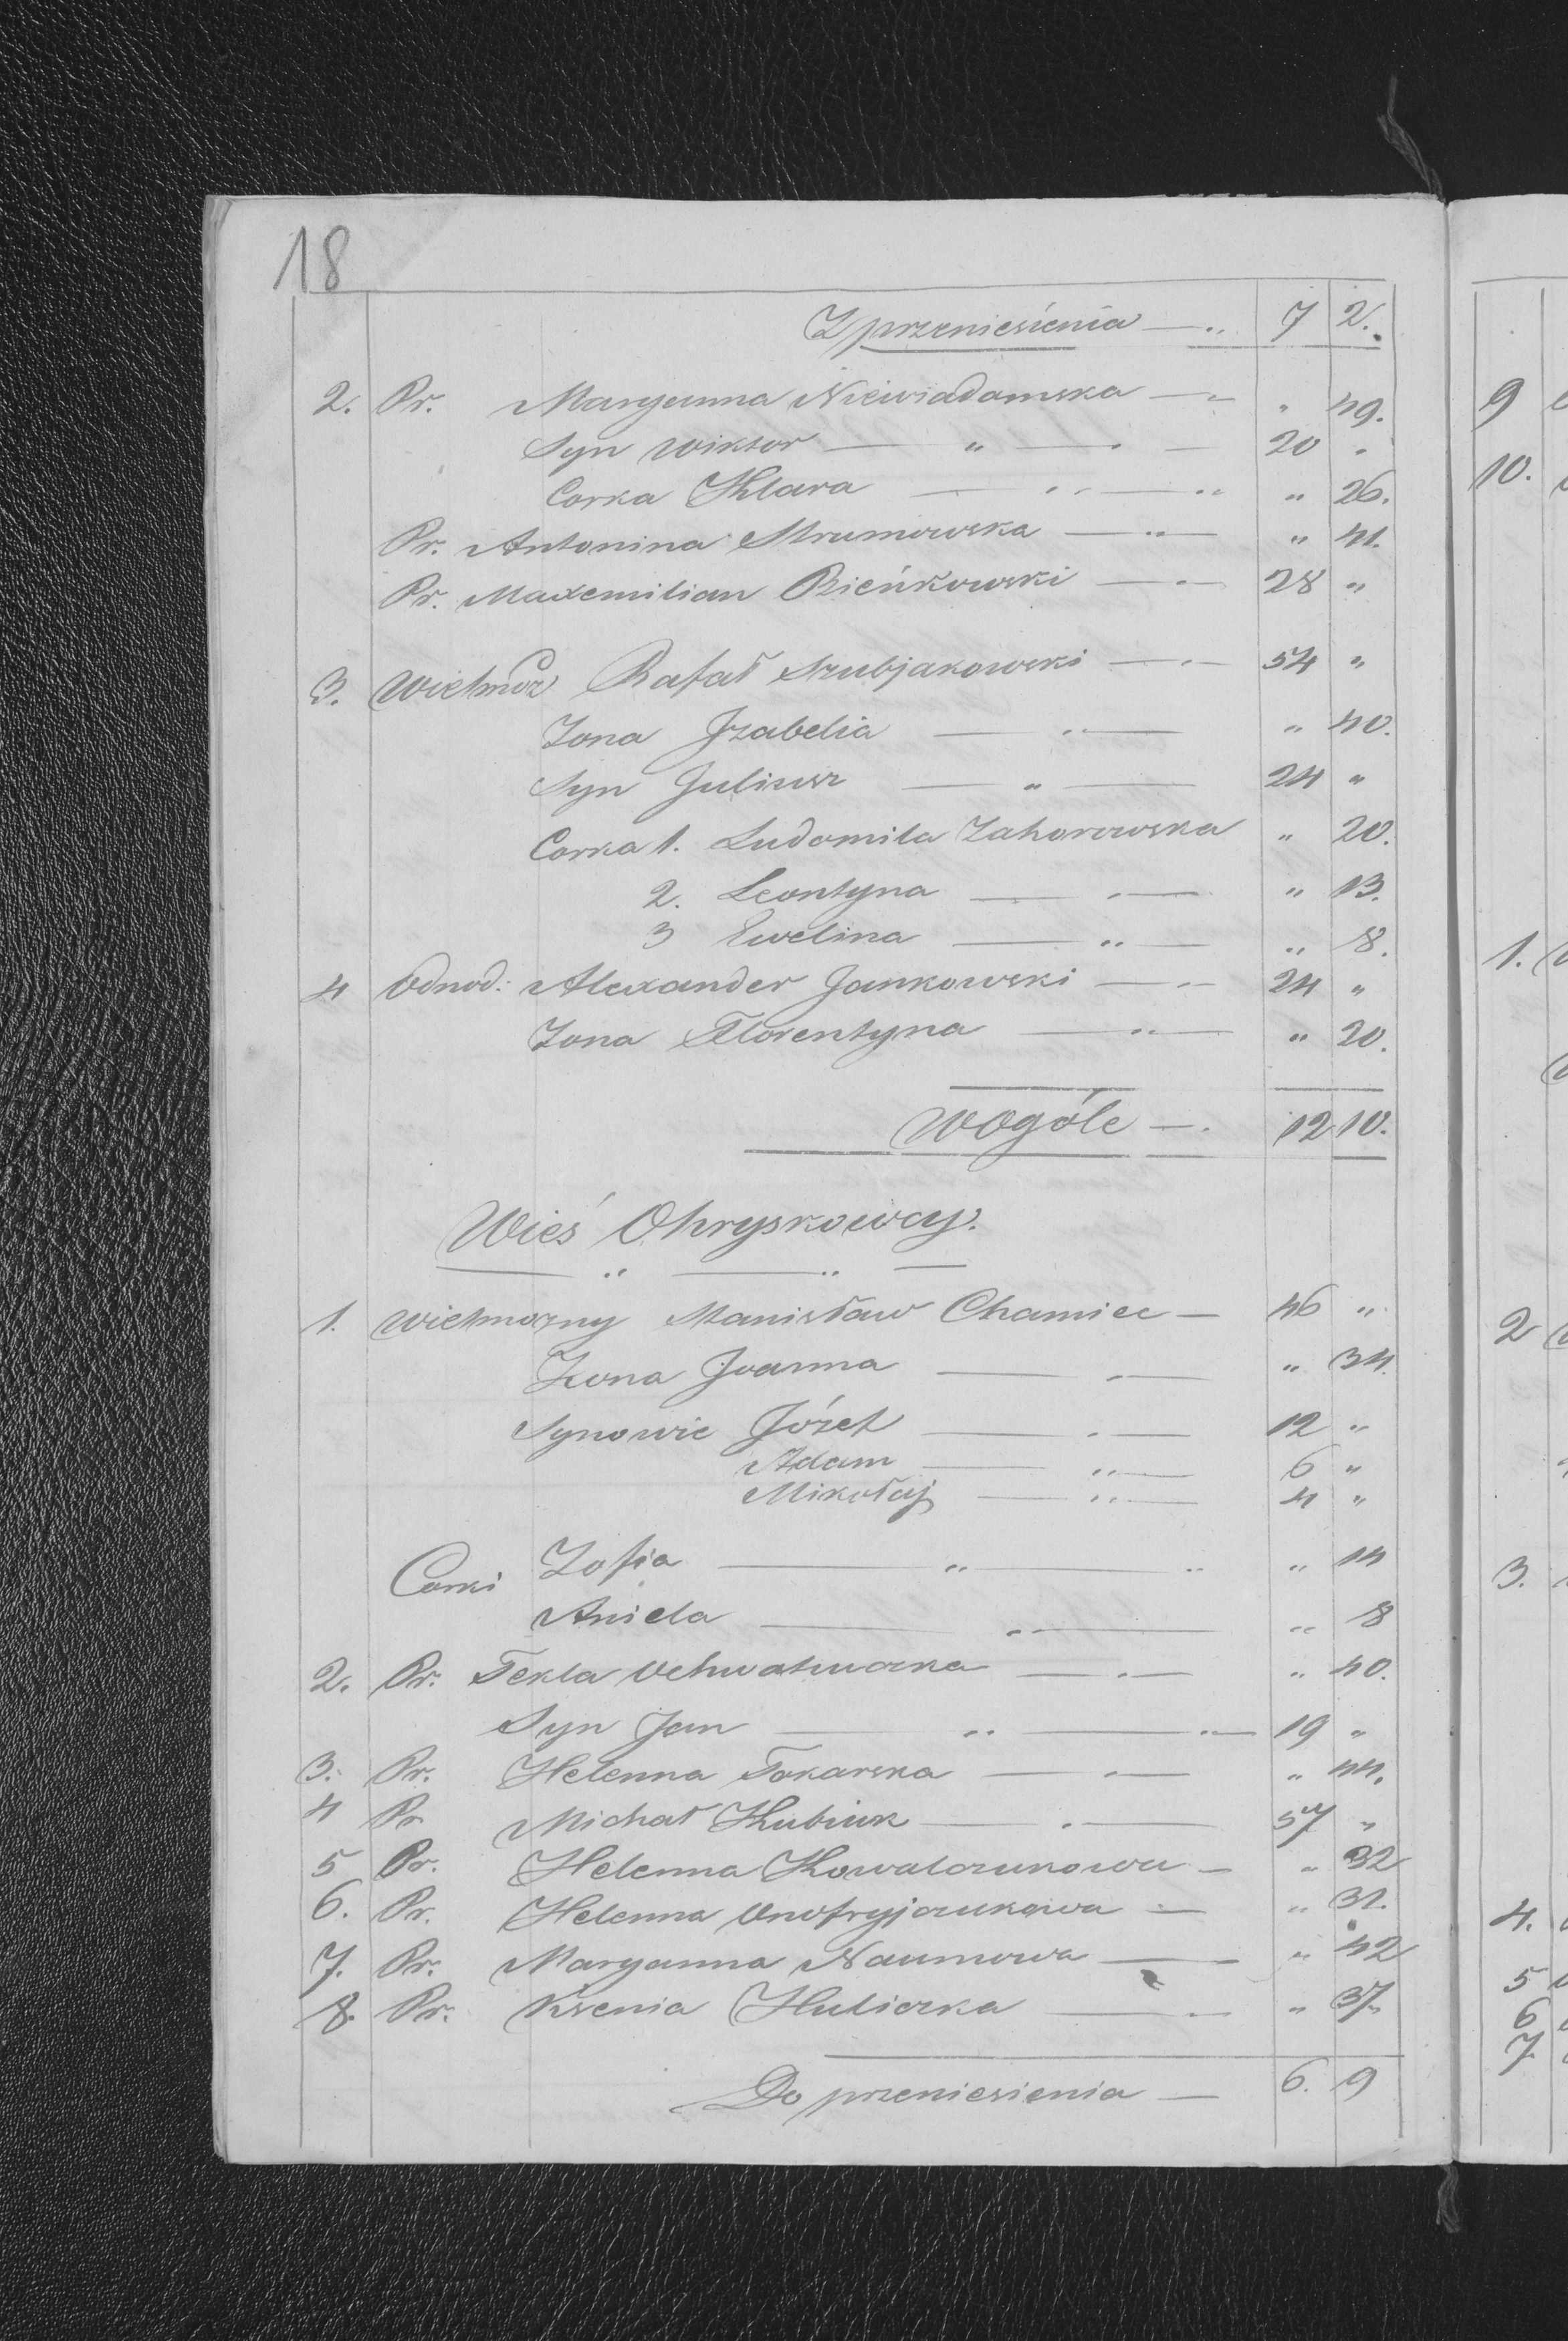 18
Z przeniesienia — „ 7 2.
2. Pr. Maryanna Niewiadamska — „ „ 49.
Syn Wiktor — „ — . — 20 „
Corka Klara — „ — „ „ 26.
Pr. Antonina Strumowska — „ — „ 41.
Pr. Maxemilian Bieńkowski — „ — 28 „
3. Wielmoz Rafał Szubjakowski — „ — 54 „
Zona Jzabelia — „ — „ 40.
Syn Juliusz — „ — 24 „
Corka 1. Ludomila Zahorowska „ 20.
2. Leontyna — „ — „ 13.
3 Ewelina — „ — „ 8.
4 Odnod: Alexander Jankowski — „ 24 „
Zona Florentyna — „ — „ 20.
Wogóle — . 12 10.
Wieś Ohryskowcy.
1. Wielmozny Stanisław Chamiec — 46 „
Zona Joanna — „ — „ 34.
Synowie Józef — . — 12 „
Adam — „ — 6 „
Mikołaj — „ — 4 „
Corki Zofia — „ — „ „ 14
Aniela — „ — „ 8
2. Pr. Tekla — . — „ 40.
Syn Jan — „ — „ 19 „
3. Pr. Helenna Tokarska — „ — „ 44.
4 Pr Michał Kubiuk — . — 57 „
5 Pr. Helenna Kowalczukowa — „ 32
6. Pr. Helenna Onofryjczukowa — „ 31.
7. Pr. Maryanna Naumowa — „ 42
8. Pr. Ksenia Huliczka — „ „ 37.
Do przeniesienia — 6. 9
9
10.
1.
2
3.
4.
5
6
7